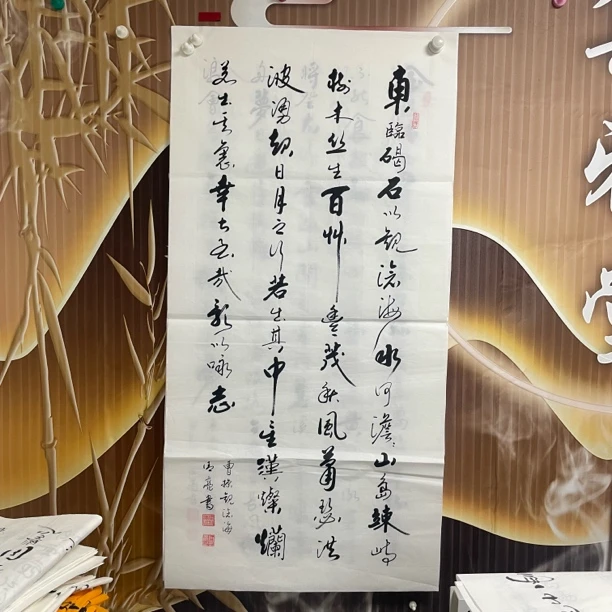 東臨碣石以觀滄海水何澹々山島竦峙
樹木丛生百艸豐茂秋風蕭瑟洪
波湧起日月之行若出其中星漢燦爛
若出其裏幸甚至哉歌以咏志
曹操觀滄海
亮書
堂